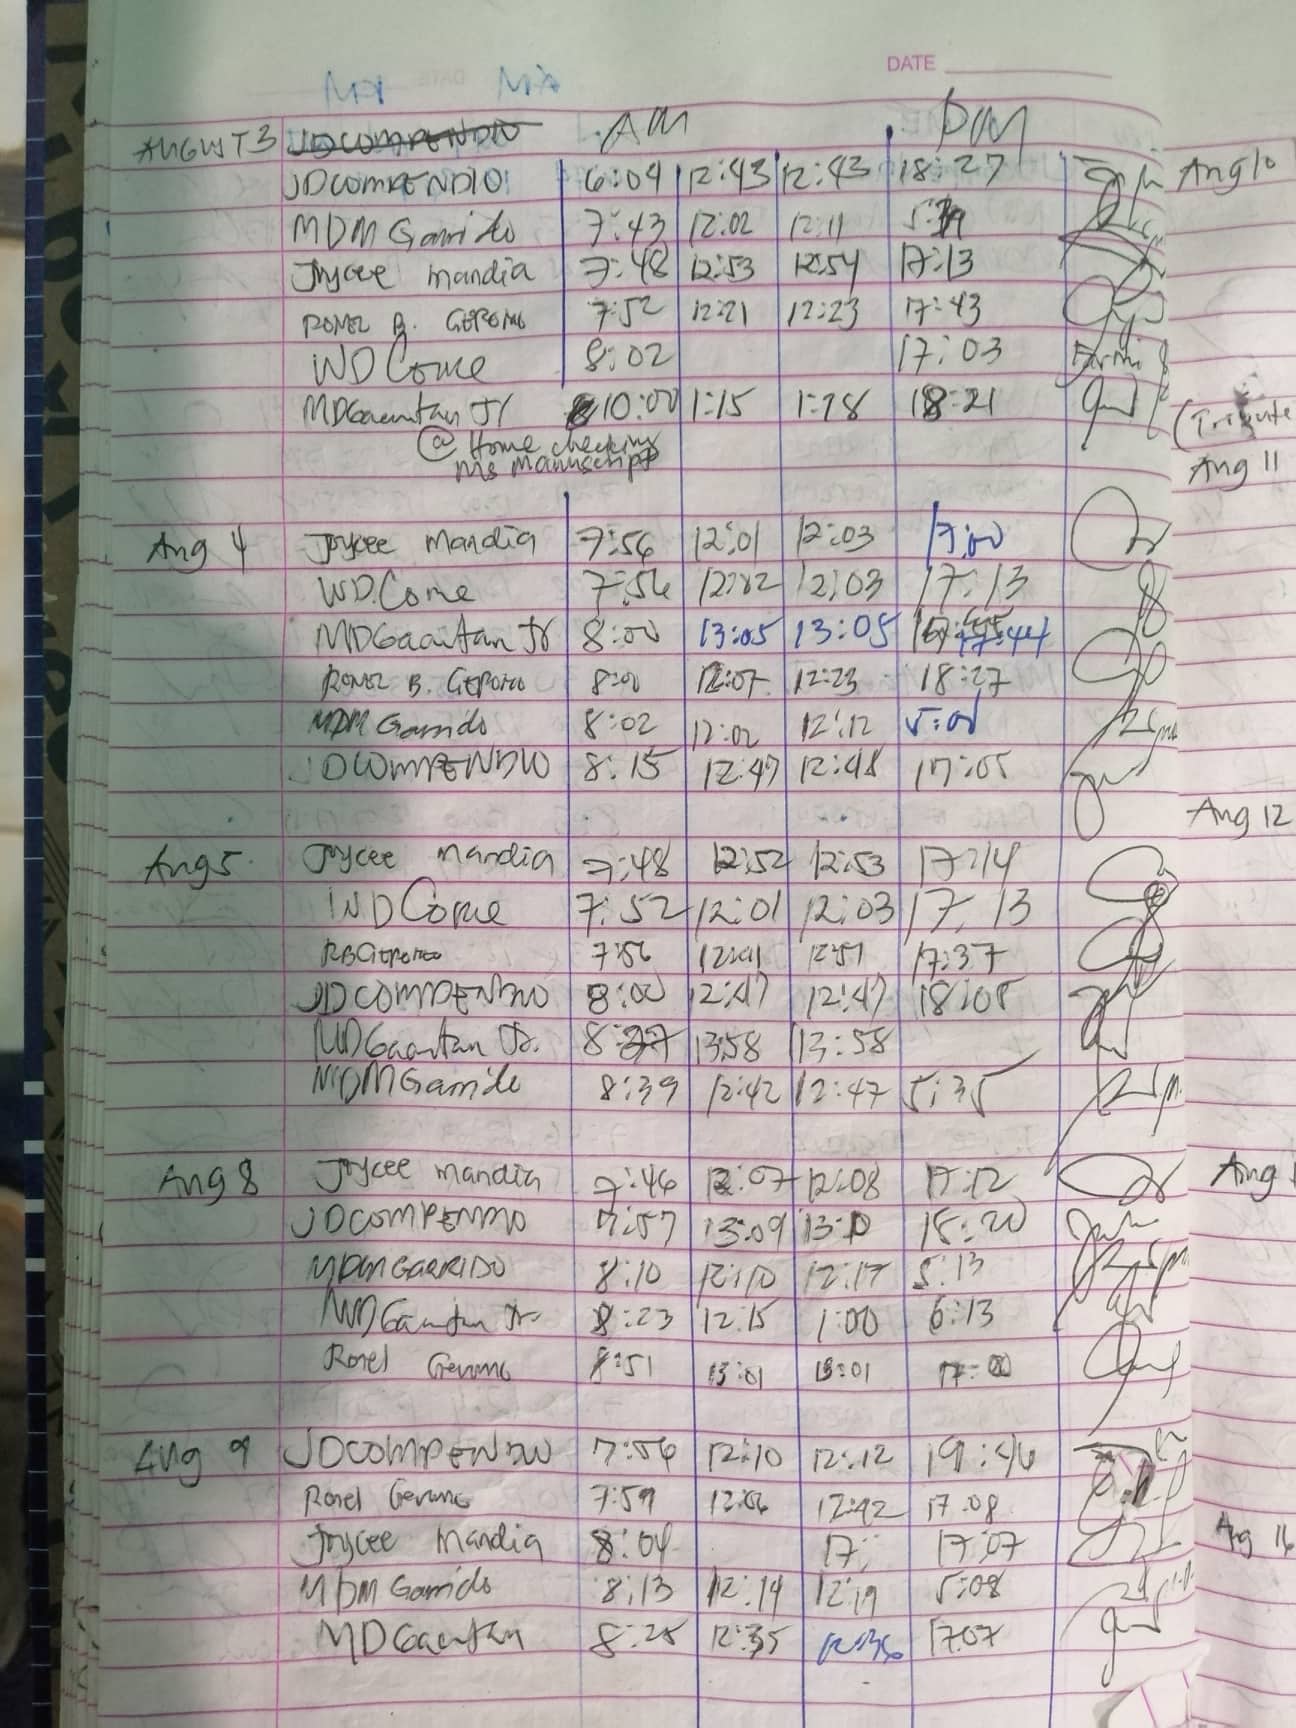 DATE
AUGUST 3 JDCOMPENDIO AM PM
JDCOMPENDIO 6:04 12:43 12:43 18:27
MDM Garrido 7:43 12:02 12:11
Joycee Mandia 7:48 12:53 12:54 17:13
RONEL B. GERONO 7:52 12:21 12:23 17:43
WD Come 8:02 17:03
MDGaontan Jr 10:00 1:15 1:28 18:21
@ Home checking
ms manuscript
Aug 4 Joycee Mandia 7:56 12:01 12:03 17:00
WD.Come 7:56 12:02 12:03 17:13
MDGaontan Jr 8:00 13:05 13:05 17:44
RONEL B. GERONO 8:00 12:07 12:23 18:27
MDM Garrido 8:02 12:02 12:12 5:01
JDCOMPENDIO 8:15 12:47 12:48 17:05
Aug 5 Joycee Mandia 7:48 12:52 12:53 17:14
WD Come 7:52 12:01 12:03 17:13
7:56 12:41 12:51 17:37
JDCOMPENDIO 8:00 12:47 12:47 18:05
MDGaontan Jr. 8:27 13:58 13:58
MDMGarrido 8:39 12:42 12:47 5:35
Aug 8 Joycee Mandia 7:46 12:07 12:08 17:12
JDCOMPENDIO 7:57 13:09 13:10 18:20
MDM GARRIDO 8:10 12:10 12:17 5:13
MDGaontan Jr 8:23 12:15 1:00 6:13
Ronel Gerono 8:51 13:01 13:01 17:00
Aug 9 JDCOMPENDIO 7:56 12:10 12:12 19:46
Ronel Gerono 7:59 12:06 12:42 17:08
Joycee Mandia 8:04 17: 17:07
MDM Garrido 8:13 12:14 12:19 5:08
MDGaontan 8:25 12:35 12:36 17:07
Aug 10
(Tribute
Aug 11
Aug 12
Aug
Aug 16